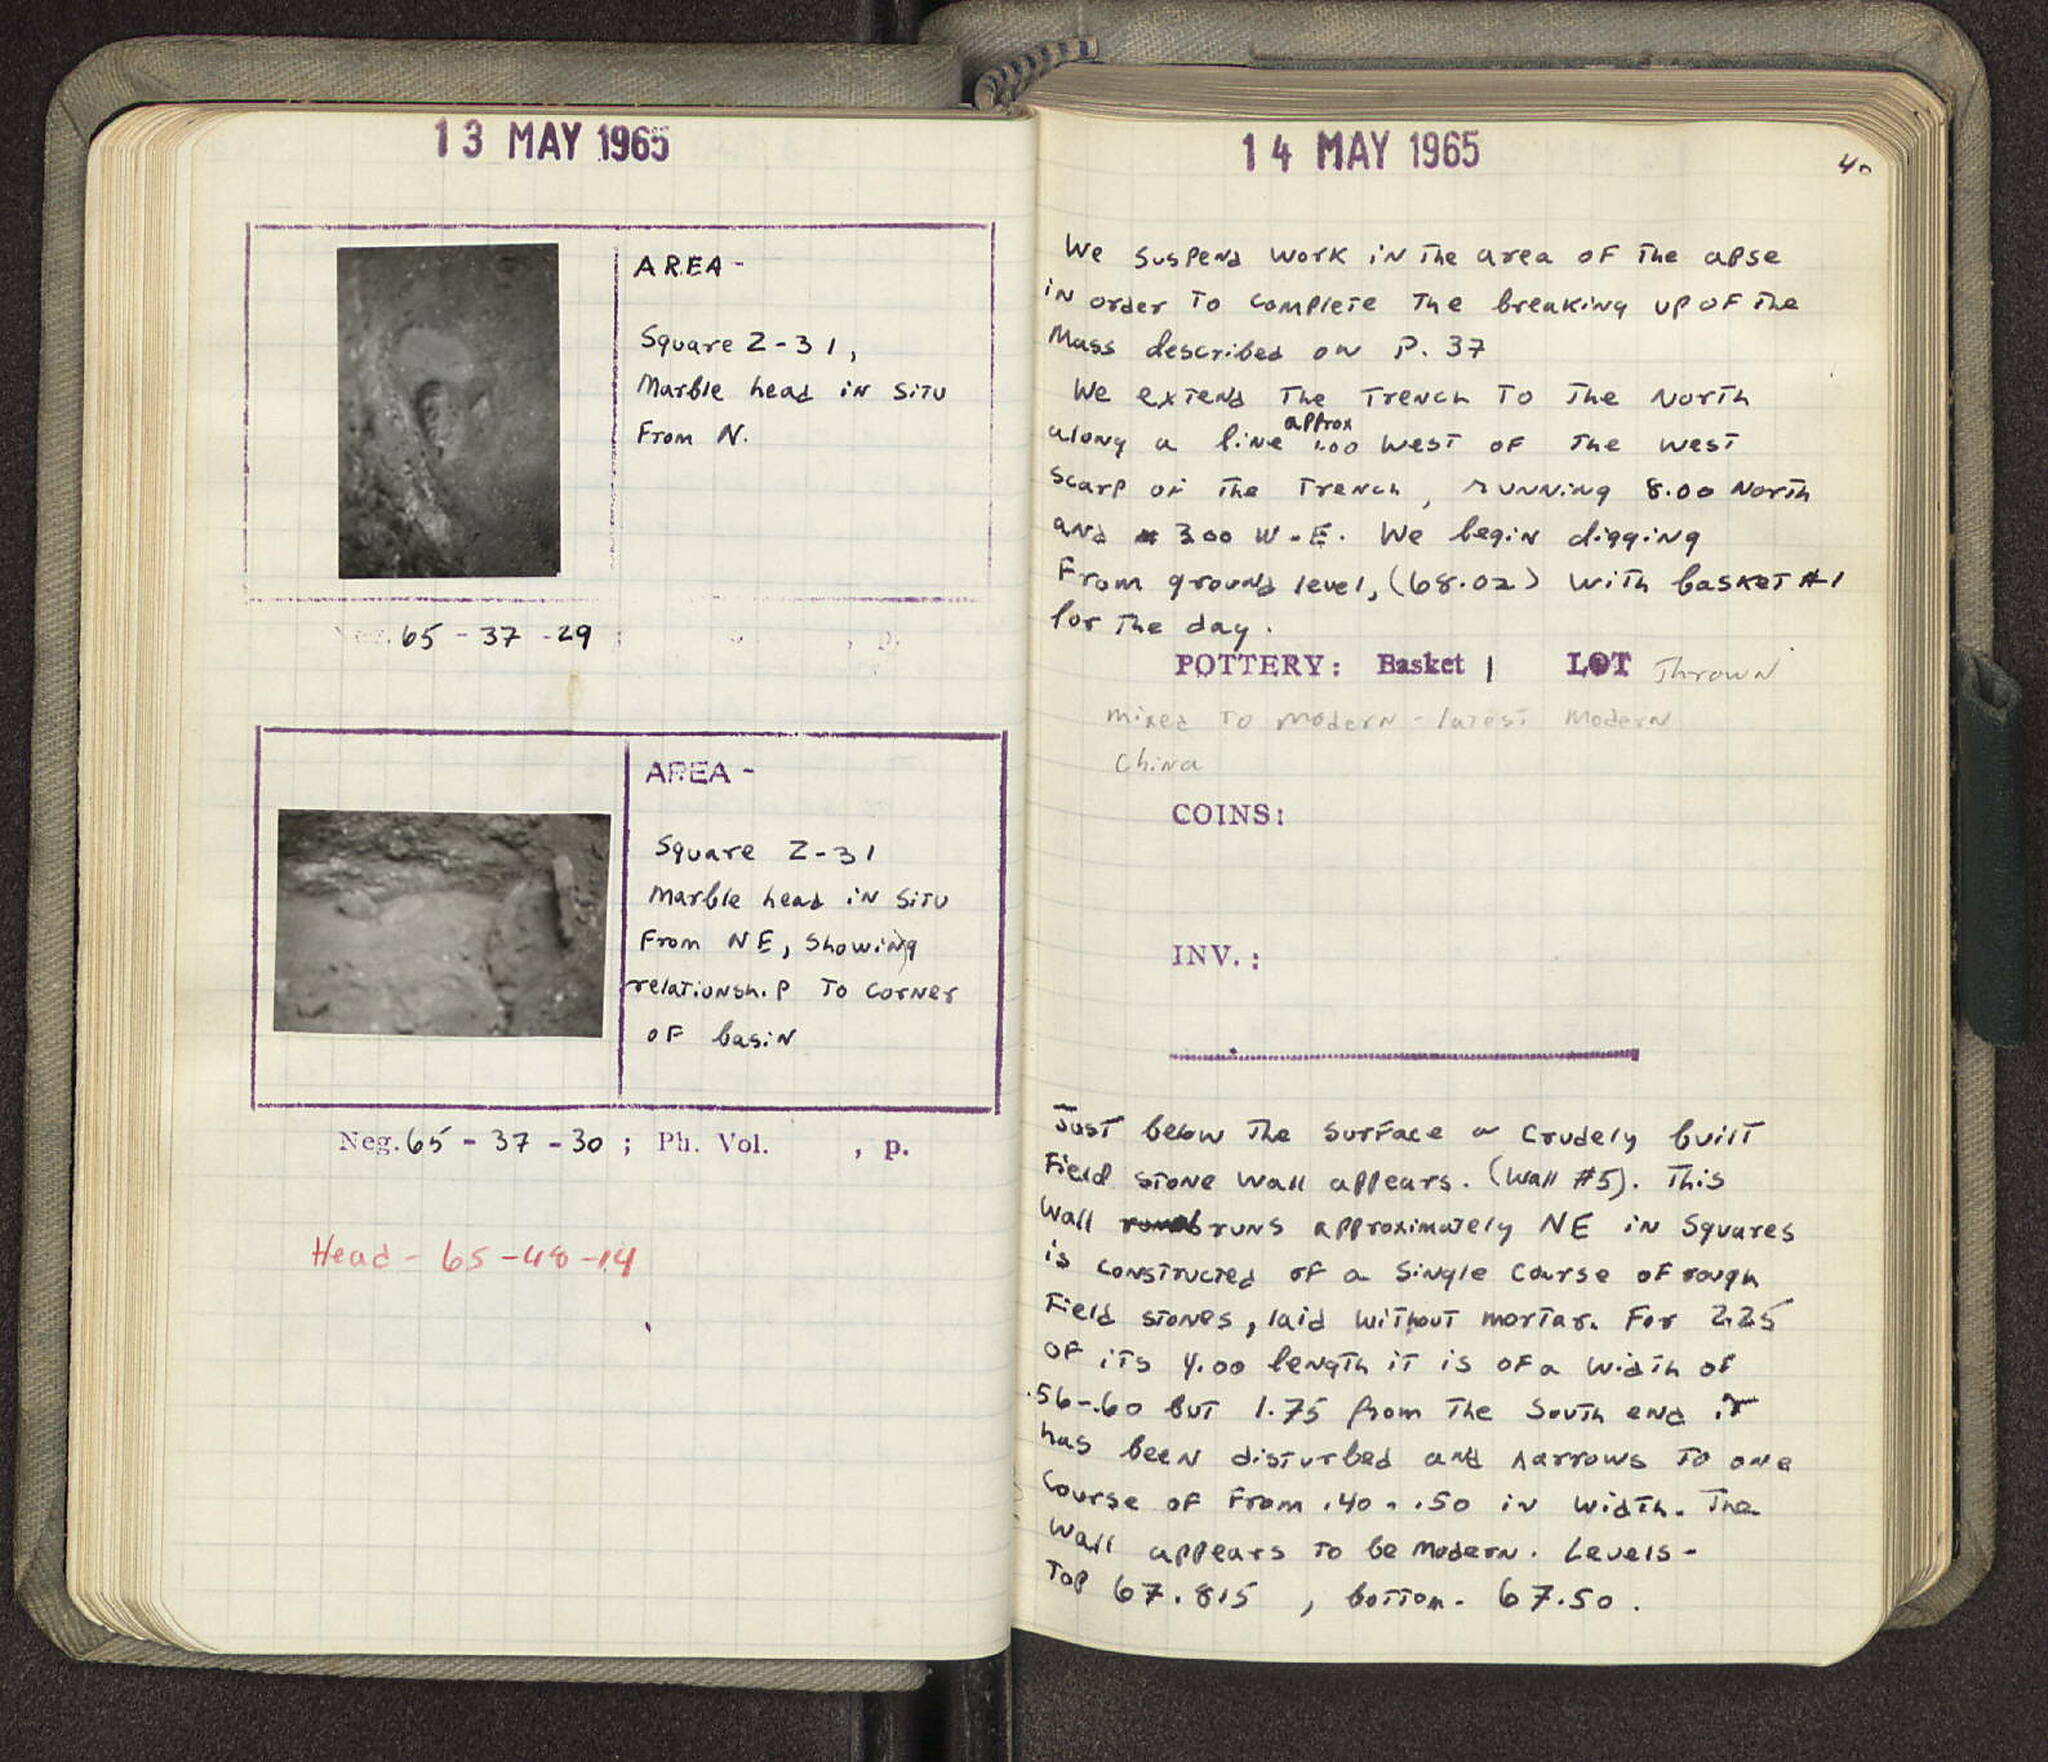 13 MAY 1965
AREA -
Square Z-31,
Marble head in situ
From N.
Neg. 65 - 37 - 29 ; , p.
AREA -
Square Z-31
Marble head in situ
From NE, showing
relationship to corner
of basin
Neg. 65 - 37 - 30 ; Ph. Vol. , p.
Head - 65-48-14
14 MAY 1965
40
We suspend work in the area of the apse
in order to complete the breaking up of the
Mass described on P. 37
We extend the trench to the North
approx
along a line 1.00 West of the west
scarp of the trench, running 8.00 North
and 3.00 W-E. We begin digging
From ground level, (68.02) with basket #1
for the day.
POTTERY: Basket 1 LOT Thrown
mixed to modern - latest Modern
China
COINS:
INV.:
Just below the surface a crudely built
Field stone wall appears. (Wall #5). This
Wall runs approximately NE in Squares
is constructed of a single course of rough
Field stones, laid without mortar. For 2.25
of its 4.00 length it is of a width of
.56-.60 but 1.75 from the South end it
has been disturbed and narrows to one
Course of From .40 - .50 in width. The
Wall appears to be modern. Levels -
Top 67.815 , bottom - 67.50.